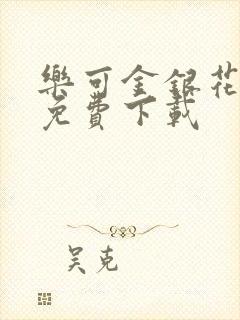 樂可金銀花
免費下載
吴克